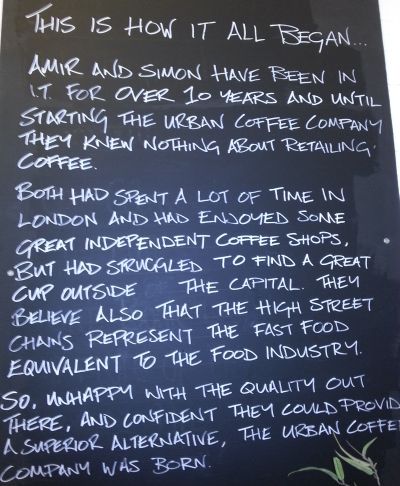 THIS IS HOW IT ALL BEGAN...
AMIR AND SIMON HAVE BEEN IN
IT FOR OVER 10 YEARS AND UNTIL
STARTING THE URBAN COFFEE COMPANY
THEY KNEW NOTHING ABOUT RETAILING
COFFEE.
BOTH HAD SPENT A LOT OF TIME IN
LONDON AND HAD ENJOYED SOME
GREAT INDEPENDENT COFFEE SHOPS,
BUT HAD STRUGGLED TO FIND A GREAT
CUP OUTSIDE THE CAPITAL. THEY
BELIEVE ALSO THAT THE HIGH STREET
CHANS REPRESENT THE FAST FOOD
EQUIVALENT TO THE FOOD INDUSTRY.
SO, UNHAPPY WITH THE QUALITY OUT
THERE, AND CONFIDENT THEY COULD PROVID
A SUPERIOR ALTERNATIVE, THE URBAN COFFEE
COMPANY WAS BORN.